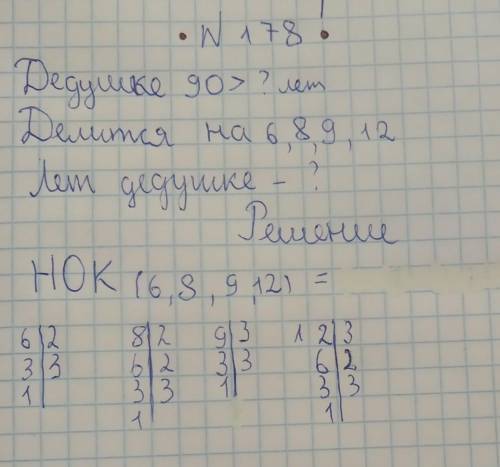 N 178!
Дедушке 90 > ? лет
Делится на 6, 8, 9, 12
Лет дедушке - ?
Решение
НОК (6, 8, 9, 12) =
6|2 8|2 9|3 12|3
3|3 6|2 3|3 6|2
1| 3|3 1| 3|3
1| 1|